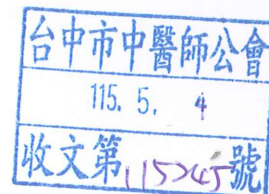 台中市中醫師公會
115. 5. 4
收文第115245號